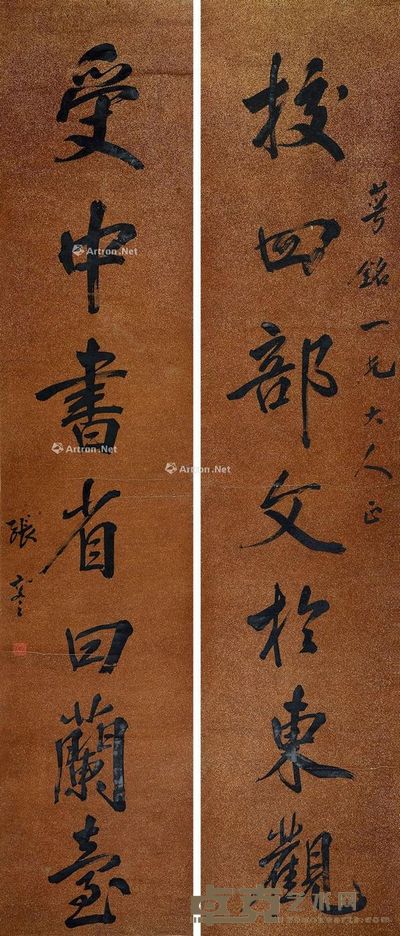 校四部文於東觀
萼銘一兄大人正
受中書省曰蘭臺
張謇
Artron.Net
Artron.Net
Artron.Net
Artron.Net